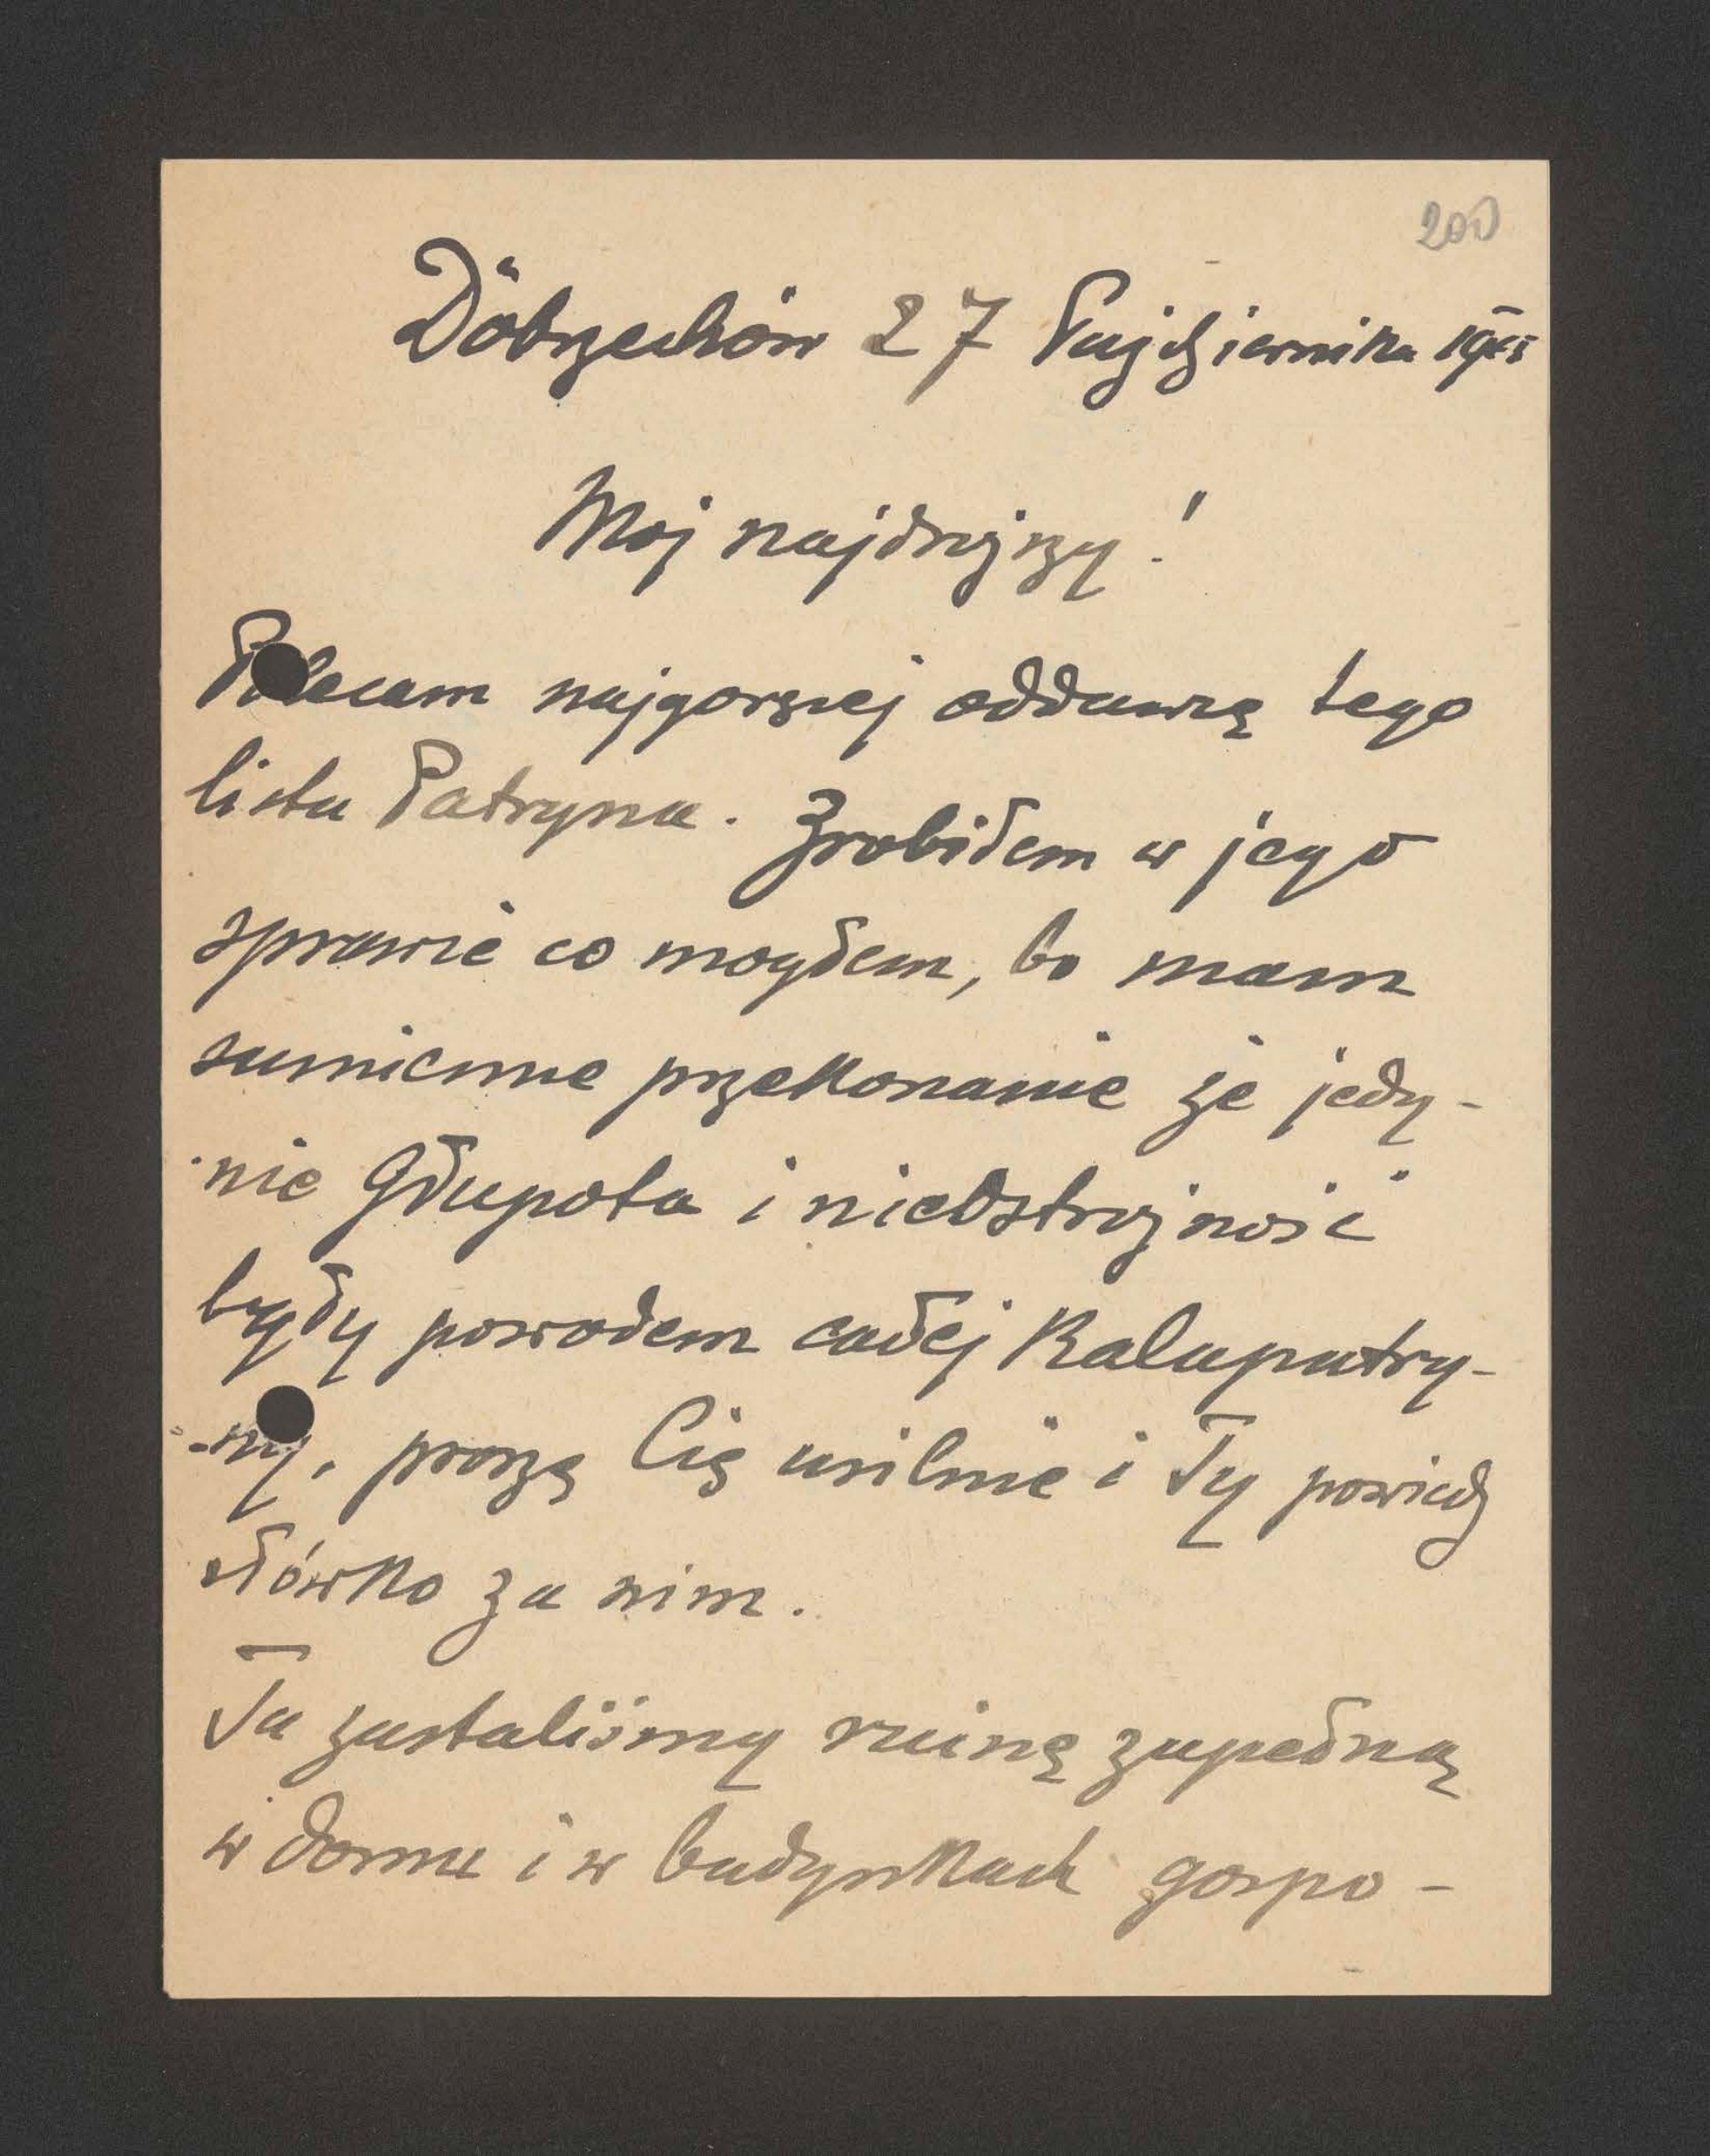 200
Dobrzechów 27 Października
Moj najdroższy!
Polecam najgoręcej oddawcę tego
listu Patryna. Zrobiłem w jego
sprawie co mogłem, bo mam
sumienne przekonanie że jedy-
nie Głupota i nieostrożność
były powodem całej Kalapatry-
-ny, proszę Cię usilnie i Ty powiedz
słówko za nim.
Tu zastaliśmy ruinę zupełną
w domu i w budynkach gospo-